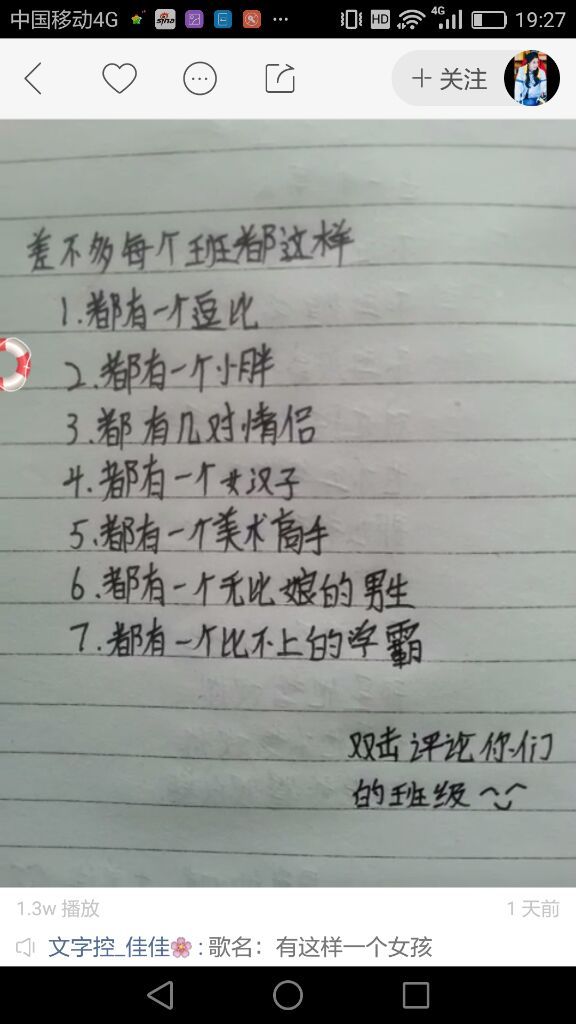 中国移动4G HD 4G 19:27
+ 关注
差不多每个班都这样
1.都有一个逗比
2.都有一个小胖
3.都有几对情侣
4.都有一个女汉子
5.都有一个美术高手
6.都有一个无比娘的男生
7.都有一个比不上的学霸
双击评论你们
的班级^‿^
1.3w 播放 1 天前
文字控_佳佳🌸: 歌名：有这样一个女孩